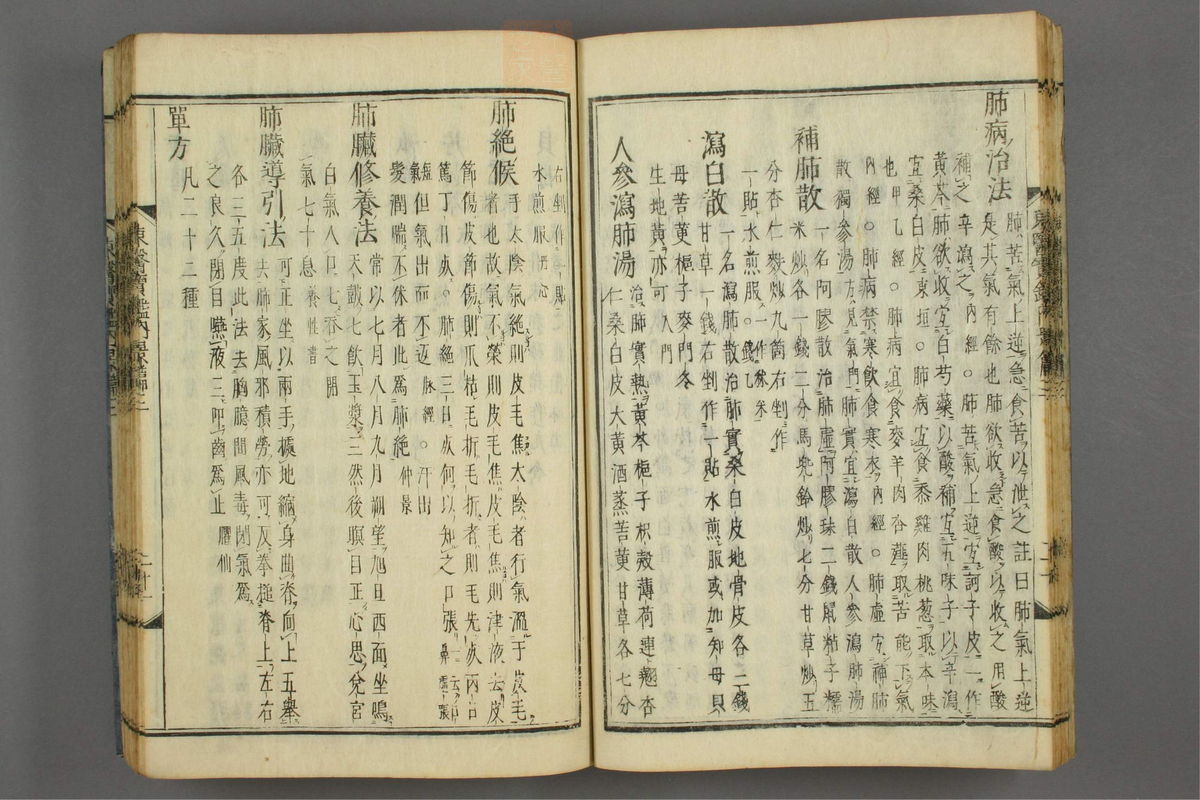 肺病治法 肺苦氣上逆急食苦以泄之註曰肺氣上逆
是其氣有餘也肺欲收急食酸以收之用酸
補之辛瀉之內經○肺苦氣上逆宜訶子皮一作
黃芩肺欲收宜白芍藥以酸補宜五味子以辛瀉
宜桑白皮東垣○肺病宜食黍雞肉桃葱取本味
也甲乙經○肺病宜食麥羊肉杏薤取苦能下氣
內經○肺病禁寒飮食寒衣內經○肺虛宜補肺
散獨參湯方見氣門肺實宜瀉白散人參瀉肺湯
補肺散 一名阿膠散治肺虛阿膠珠二錢鼠粘子糯
米炒各一錢二分馬兜鈴炒七分甘草炒五
分杏仁麩炒九箇右剉作
一貼水煎服一作粉末 錢乙
瀉白散 一名瀉肺散治肺實桑白皮地骨皮各二錢
甘草一錢右剉作一貼水煎服或加知母貝
母苦莄梔子麥門冬
生地黃亦可入門
人參瀉肺湯 治肺實熱黃芩梔子枳殼薄荷連翹杏
仁桑白皮大黃酒蒸苦莄甘草各七分
右剉作一貼
水煎服丹心
肺絕候 手太陰氣絕則皮毛焦太陰者行氣溫于皮毛
者也故氣不榮則皮毛焦皮毛焦則津液去皮
節傷皮節傷則爪枯毛折毛折者則毛先死丙
篤丁日死○肺絕三日死何以知之口張一云口鼻虛張
短氣但氣出而不返脉經○汗出
髮潤喘不休者此爲肺絕仲景
肺臟修養法 常以七月八月九月朔望旭旦西面坐鳴
天鼓七飮玉漿三然後瞑目正心思兌宮
白氣入口七吞之閉
氣七十息養性書
肺臟導引法 可正坐以兩手據地縮身曲脊向上五擧
去肺家風邪積勞亦可反拳搥脊上左右
各三五度此法去胸臆間風毒閉氣爲
之良久閉目嚥液三叩齒爲止臞仙
單方
凡二十二種